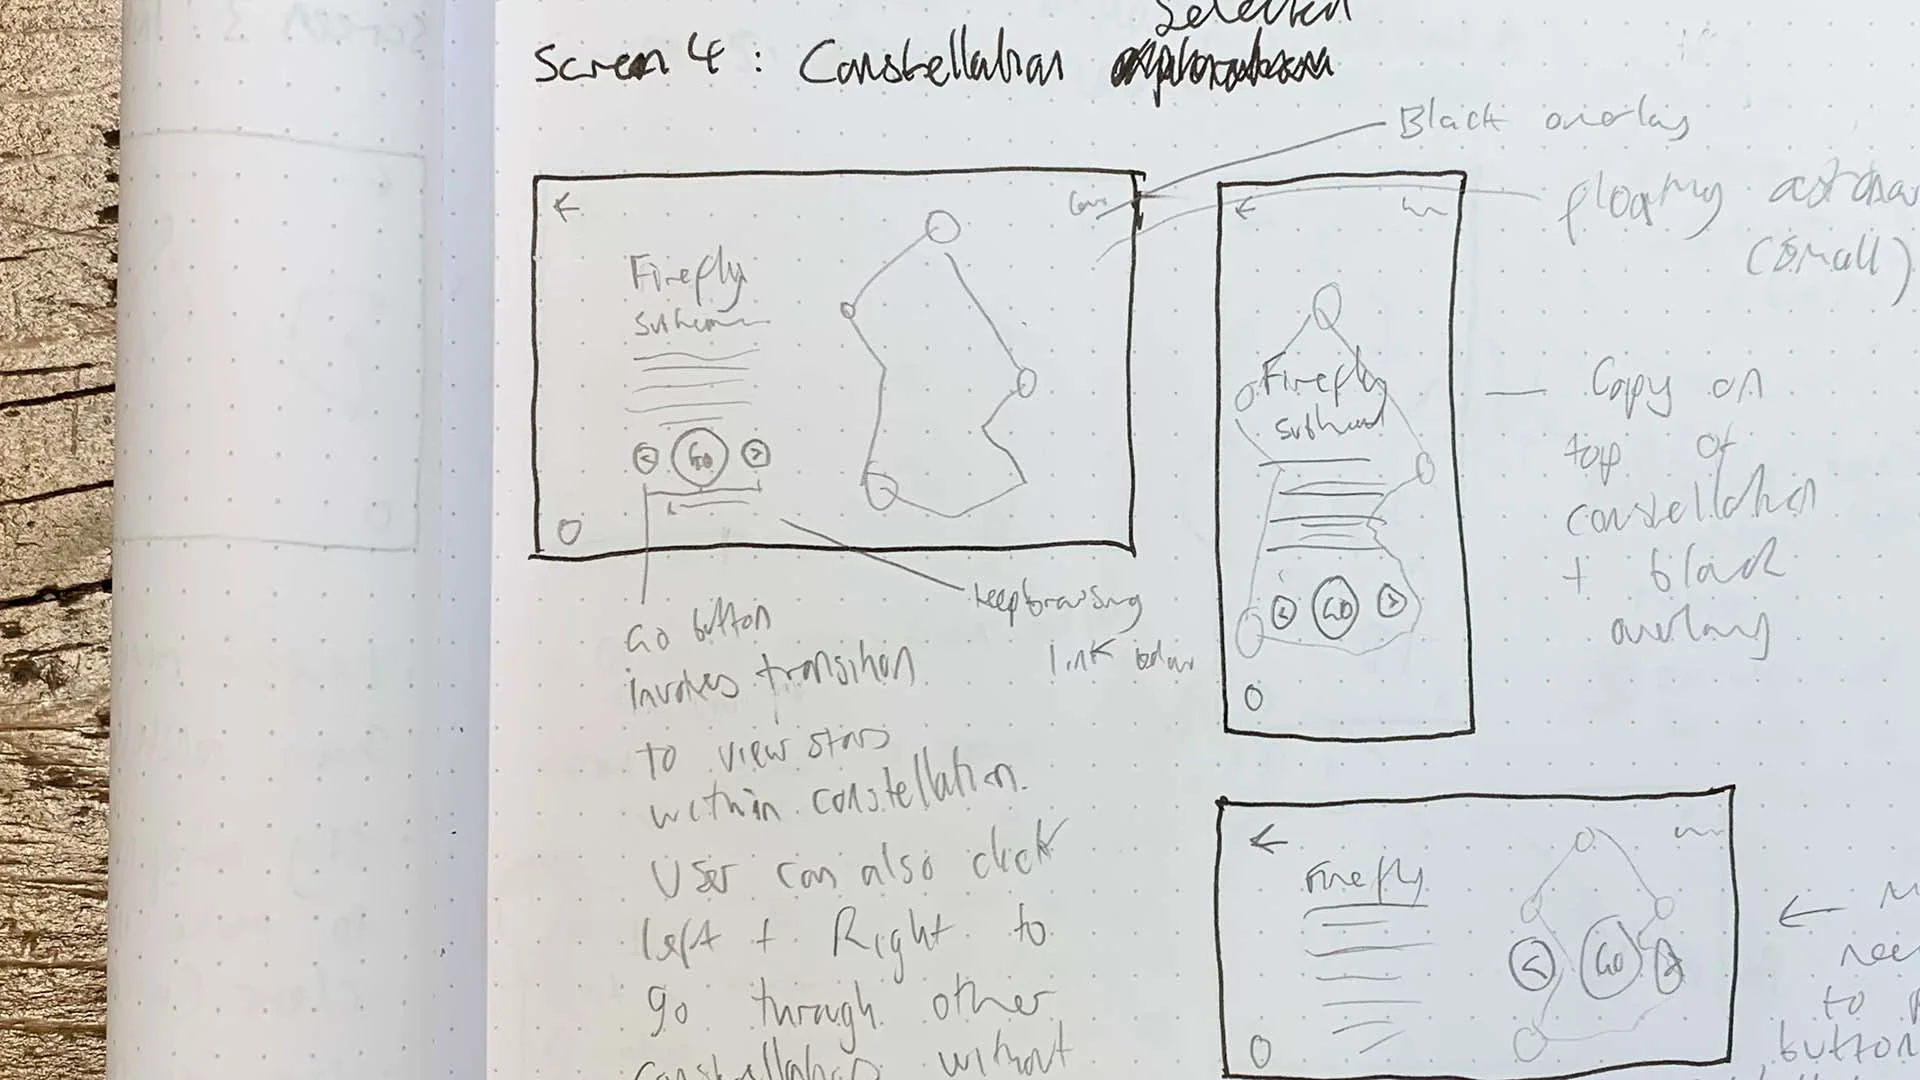 Selected
Screen 4 : Constellation
Black overlay
floating
(small)
←
Firefly
< GO >
←
Firefly
subhead
< GO >
Copy on
top of
constellation
+ black
overlay
Keep browsing
link below
Go button
involves transition
to view stars
within constellation.
User can also click
left + Right to
go through other
constellations without
←
Firefly
< GO >
←
to
button